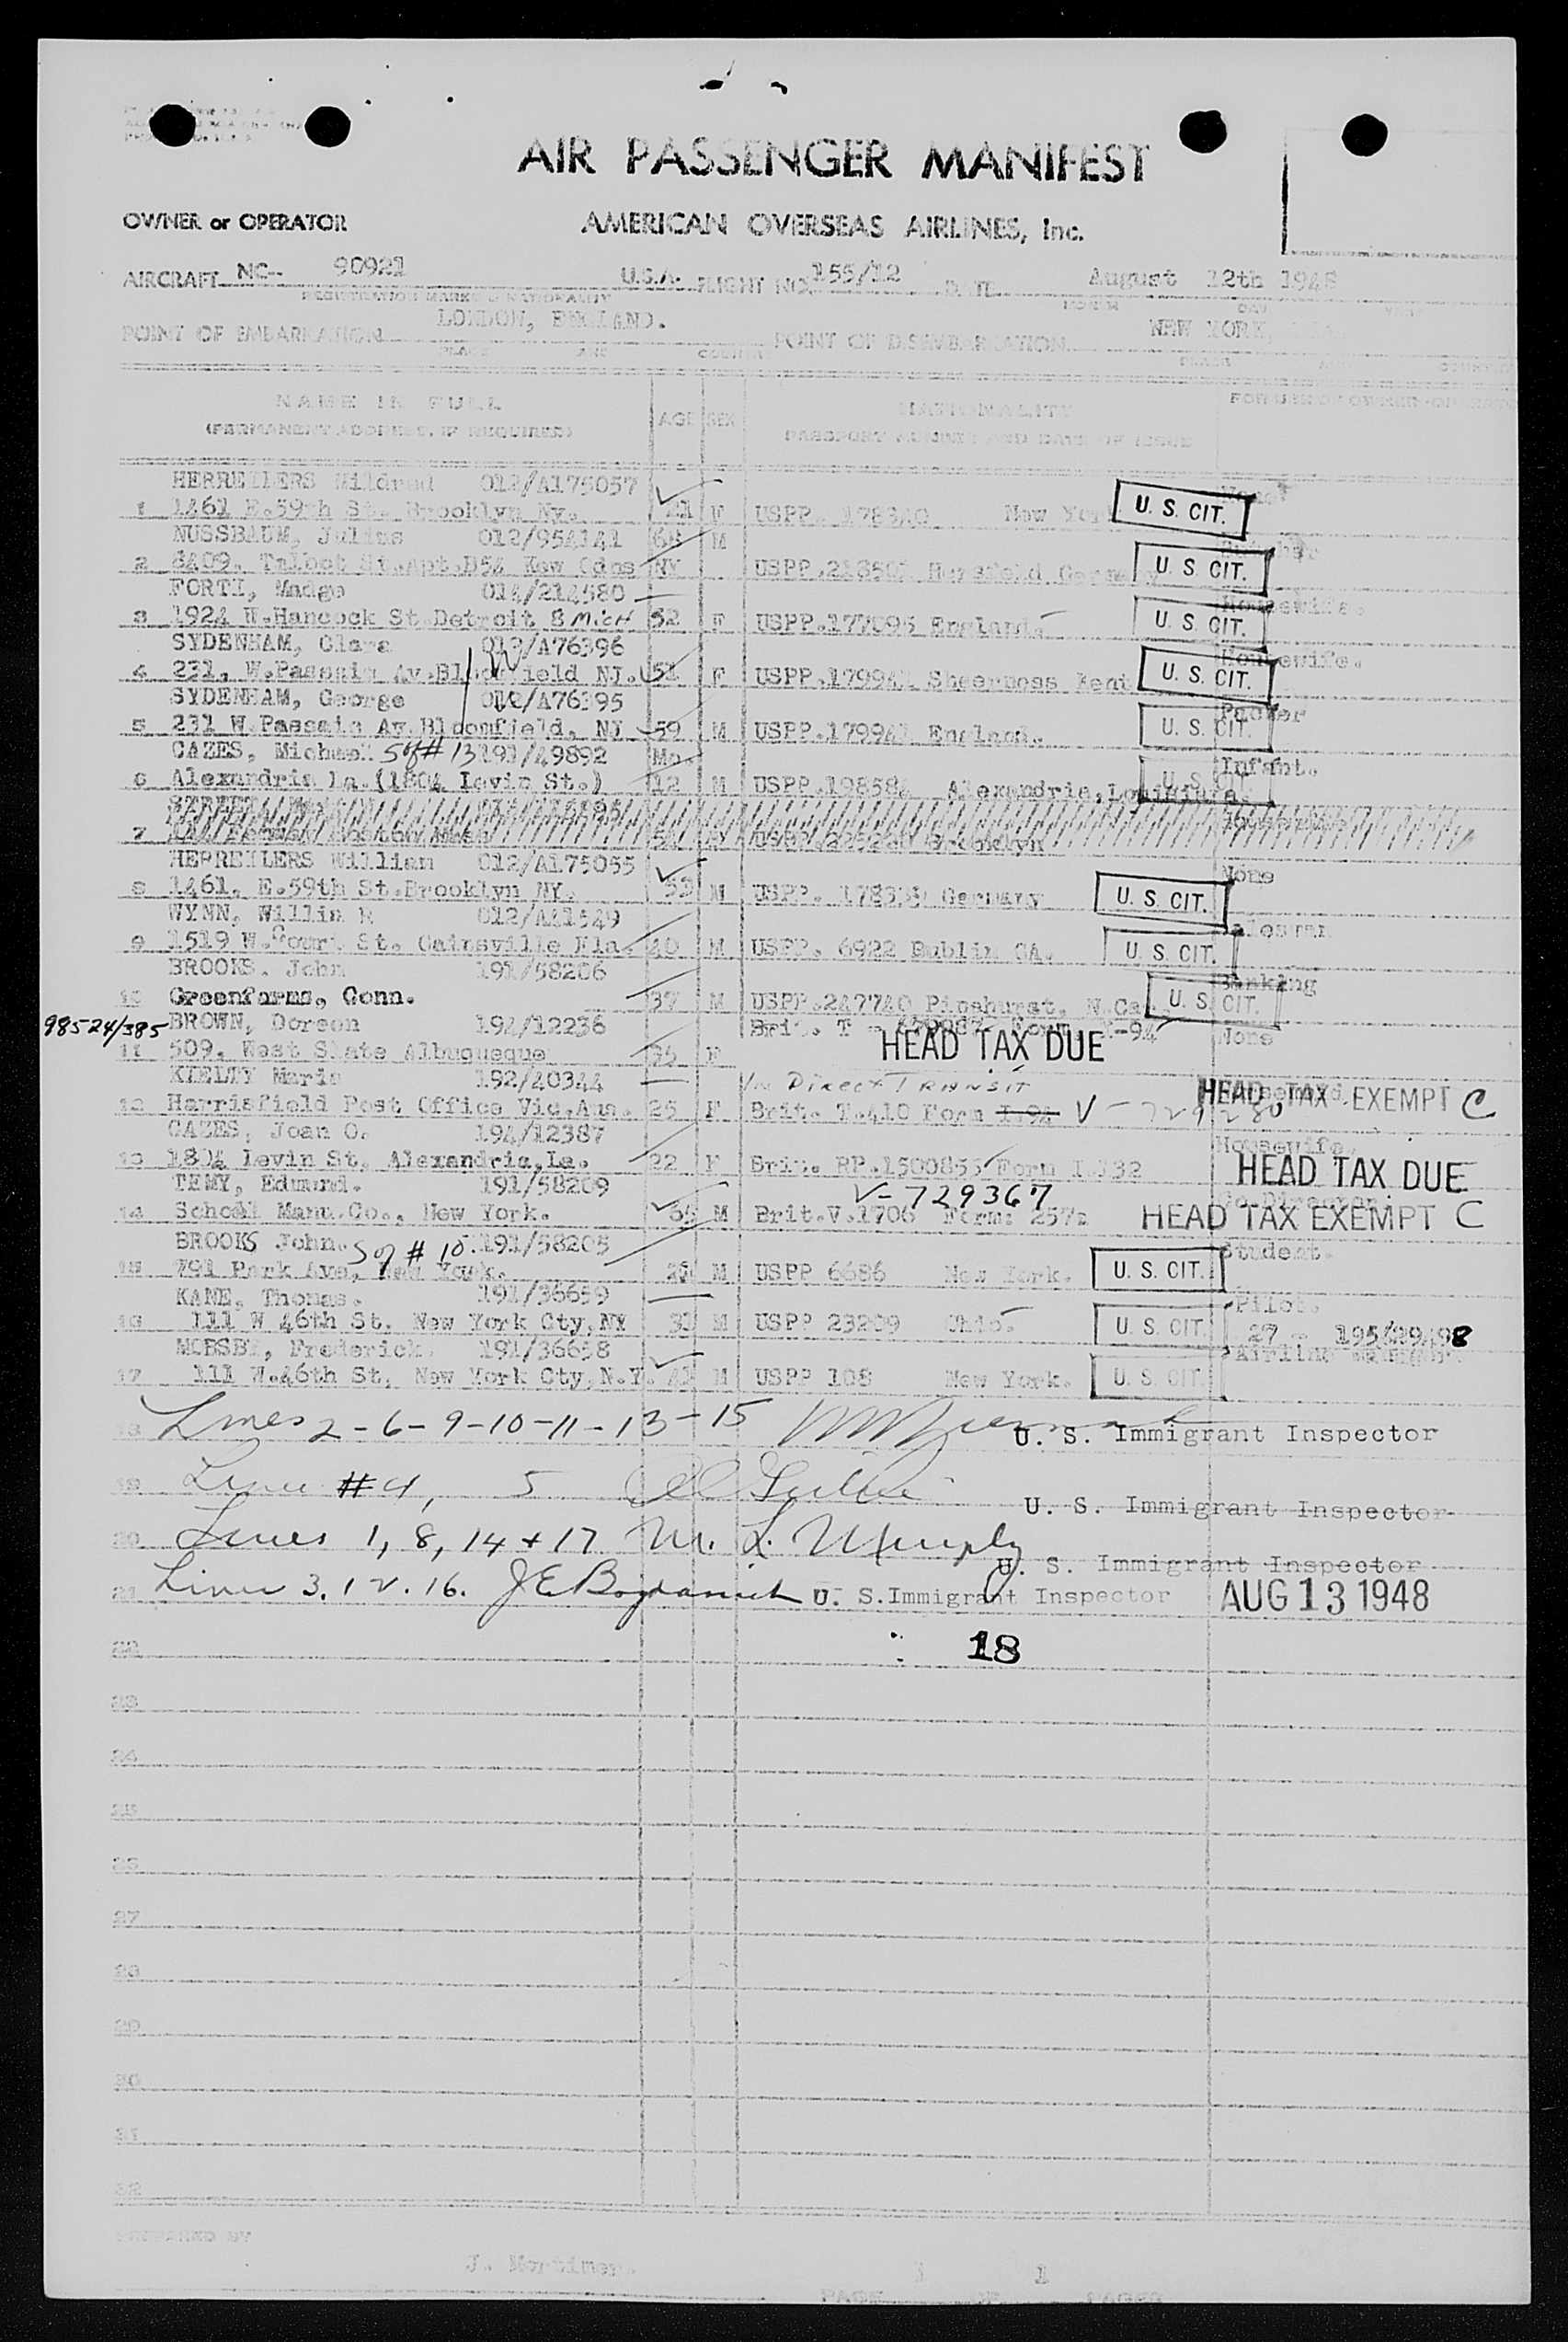 AIR PASSENGER MANIFEST
OWNER or OPERATOR AMERICAN OVERSEAS AIRLINES, Inc.
AIRCRAFT NC-- 90921 U.S.A. FLIGHT NO. 155/12 DATE August 12th 1948
REGISTRATION MARKS & NATIONALITY MONTH DAY YEAR
POINT OF EMBARKATION LONDON, ENGLAND. POINT OF DISEMBARKATION NEW YORK,
PLACE AND COUNTRY PLACE AND COUNTRY
NAME IN FULL AGE SEX NATIONALITY
(PERMANENT ADDRESS, IF REQUIRED) PASSPORT NUMBER AND DATE OF ISSUE
HERREILERS Mildred 012/A175057
1 1461 E.59th St. Brooklyn Ny. 21 F USPP. 178340 New York U. S. CIT.
NUSSBAUM, Julius 012/954141 68 M
2 8409. Talbot St.Apt.D54 Kew Gdns NY USPP. U. S. CIT.
FORTI, Madge 014/214580 Housewife.
3 1924 W.Hancock St Detroit 8 MICH 52 F USPP.177095 England. U. S. CIT.
SYDENHAM, Clara 012/A76396 Housewife.
4 231, W.Passaic Av.Bloomfield NJ. 51 F USPP.179941 Sheerness Kent U. S. CIT.
SYDENHAM, George 012/A76395 Packer
5 231 W.Passaic Av.Bloomfield, NJ 59 M USPP.179941 England. U. S. CIT.
CAZES, Michael S of # 13 191/49892 Mo. Infant.
6 Alexandria La.(1804 Levin St.) 12 M USPP.19858 Alexandria, Louisiana. U. S. CIT.
7
HERREILERS William 012/A175055 None
8 1461, E.59th St.Brooklyn NY. 53 M USPP. Germany U. S. CIT.
WYNN, Willie R 012/A41549 Salesman
9 1519 W.Court St. Gainsville Fla. 40 M USPP. 6922 Dublin GA. U. S. CIT.
BROOKS. John 191/58206 Banking
10 Greenfarms, Conn. 37 M USPP.247740 Pinehurst, N.Ca. U. S. CIT.
98524/385 BROWN, Doreen 194/12236 Brit. T Form I-94 None
11 509, West Slate Albuqueque F HEAD TAX DUE
KIELTY Marie 192/40344 IN DIRECT TRANSIT
12 Harrisfield Post Office Vic.Aus. 25 F Brit. T.410 Form I-94 V-729280 HEAD TAX EXEMPT C
CAZES, Joan O. 194/12387 Housewife.
13 1804 Levin St. Alexandria,La. 22 F Brit. PP.1500855 Form I 132 HEAD TAX DUE
TEMY, Edmund. 191/58209 V-729367 Co Director.
14 Scholl Manu.Co., New York. M Brit.V.1706 Form: 257a HEAD TAX EXEMPT C
BROOKS John. S of # 10. 191/58205 Student.
15 791 Park Ave, New York. M USPP 6686 New York. U. S. CIT.
KANE, Thomas. 191/36659 Pilot.
16 111 W 46th St. New York Cty,NY M USPP 23209 Ohio. U. S. CIT. 27
MOBSBY, Frederick. 191/36658 Airline
17 111 W.46th St, New York Cty,N.Y. 41 M USPP 108 New York. U. S. CIT.
18 Lines 2-6-9-10-11-13-15 U. S. Immigrant Inspector
19 Lines #4, 5 U. S. Immigrant Inspector
20 Lines 1, 8, 14 + 17 M. L. Murphy U. S. Immigrant Inspector
21 Lines 3. 12. 16. U. S.Immigrant Inspector AUG 13 1948
22 18
23
24
25
26
27
28
29
30
31
32
PREPARED BY
J. Mortimer.
PAGE 1 OF 1 PAGES